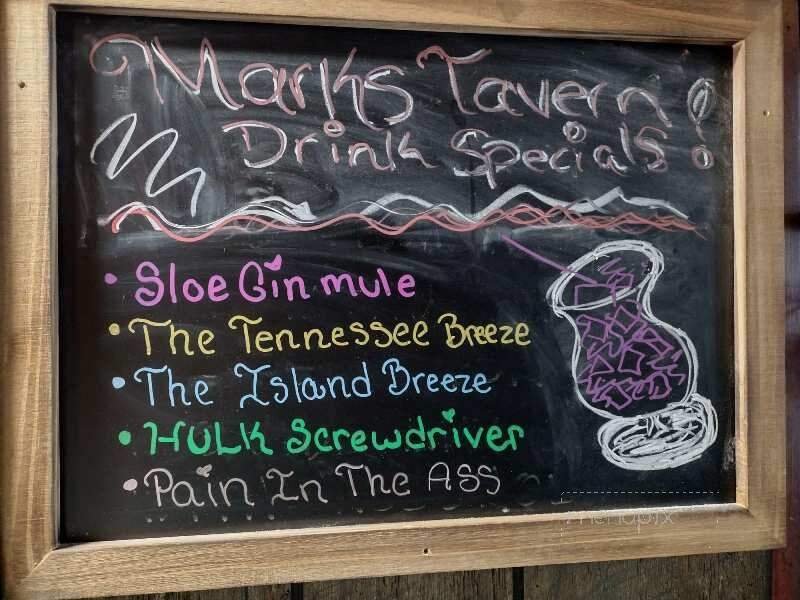 Marks Tavern !
Drink Specials
• Sloe Gin mule
• The Tennessee Breeze
• The Island Breeze
• HULK Screwdriver
• Pain In The ASS
menupix